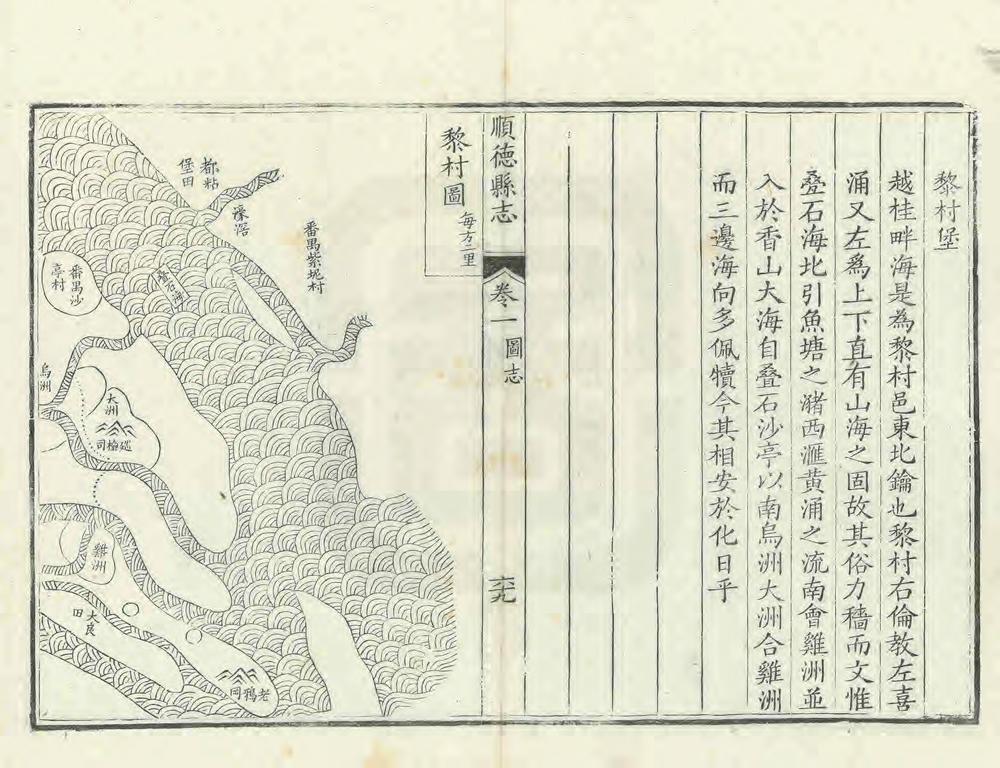 黎村堡
越桂畔海是為黎村邑東北鑰也黎村右倫教左喜
涌又左爲上下直有山海之固故其俗力穡而文惟
叠石海北引魚塘之瀦西滙黃涌之流南會雞洲並
入於香山大海自叠石沙亭以南烏洲大洲合雞洲
而三邊海向多佩犢今其相安於化日乎
順德縣志
卷一
圖志
六九
黎村圖
每方二里
番禺紫坭村
都粘
堡田
濠滘
叠石海
番禺沙
亭村
烏洲
大洲
雞洲
大良
田
老鴉岡